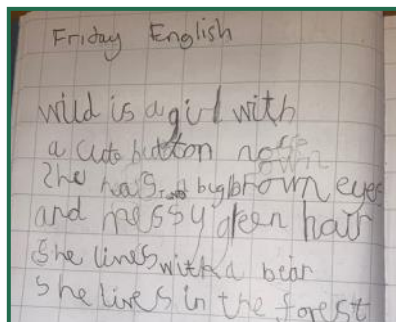 Friday English
wild is a girl with
a cute button nose
She has big brown eyes
and messy green hair
She lines with a bear
She lives in the forest